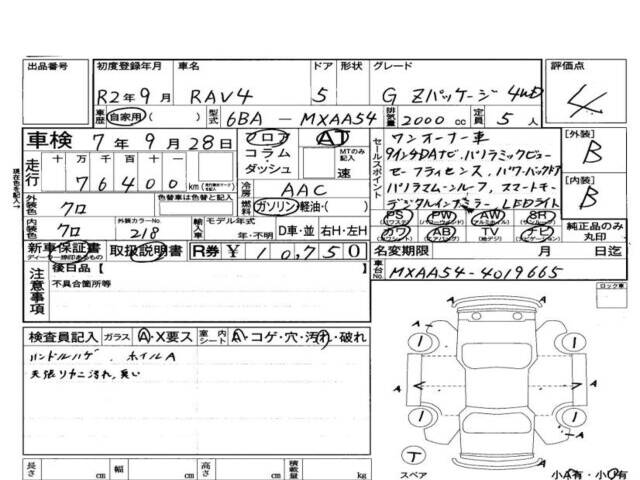 出品番号
初度登録年月 車名 ドア 形状 グレード 評価点
R2年9月 RAV4 5 G Zパッケージ 4WD 4
車歴 自家用 型式 6BA-MXAA54 排気量 2000cc 定員 5人
車検 7年9月28日 フロア AT
コラム・ダッシュ MTのみ記入 速
走行 十万千百十 76400 km
冷房 AAC
外装色 クロ 色替車は色替と記入 燃料 ガソリン・軽油・( )
内装色 クロ 外装カラーNo. 218 輸入車 モデル年式 年・不明 D車・並 右H・左H
現在色を記入
セールスポイント
ワンオーナー車
9インチDAナビ、パノラミックビュー
セーフティセンス、パワーバックドア
パノラマムーンルーフ、スマートキー
デジタルインナミラー LEDライト
PS PW AW SR
カワ AB TV ナビ
[外装] B
[内装] B
純正品のみ丸印
新車保証書 取扱説明書 R券 ¥10,750
名変期限 月 日迄
車台No. MXAA54-4019665
注意事項 後日品【
不具合箇所等
ロック車
検査員記入 ガラス A・X要ス 室内シート A・コゲ・穴・汚れ・破れ
ハンドルハゲ、ホイルA
天張リカニ汚れ、臭い
A A A A A A
T
スペア
小A有・小U有
長さ cm 幅 cm 高さ cm 積載量 kg